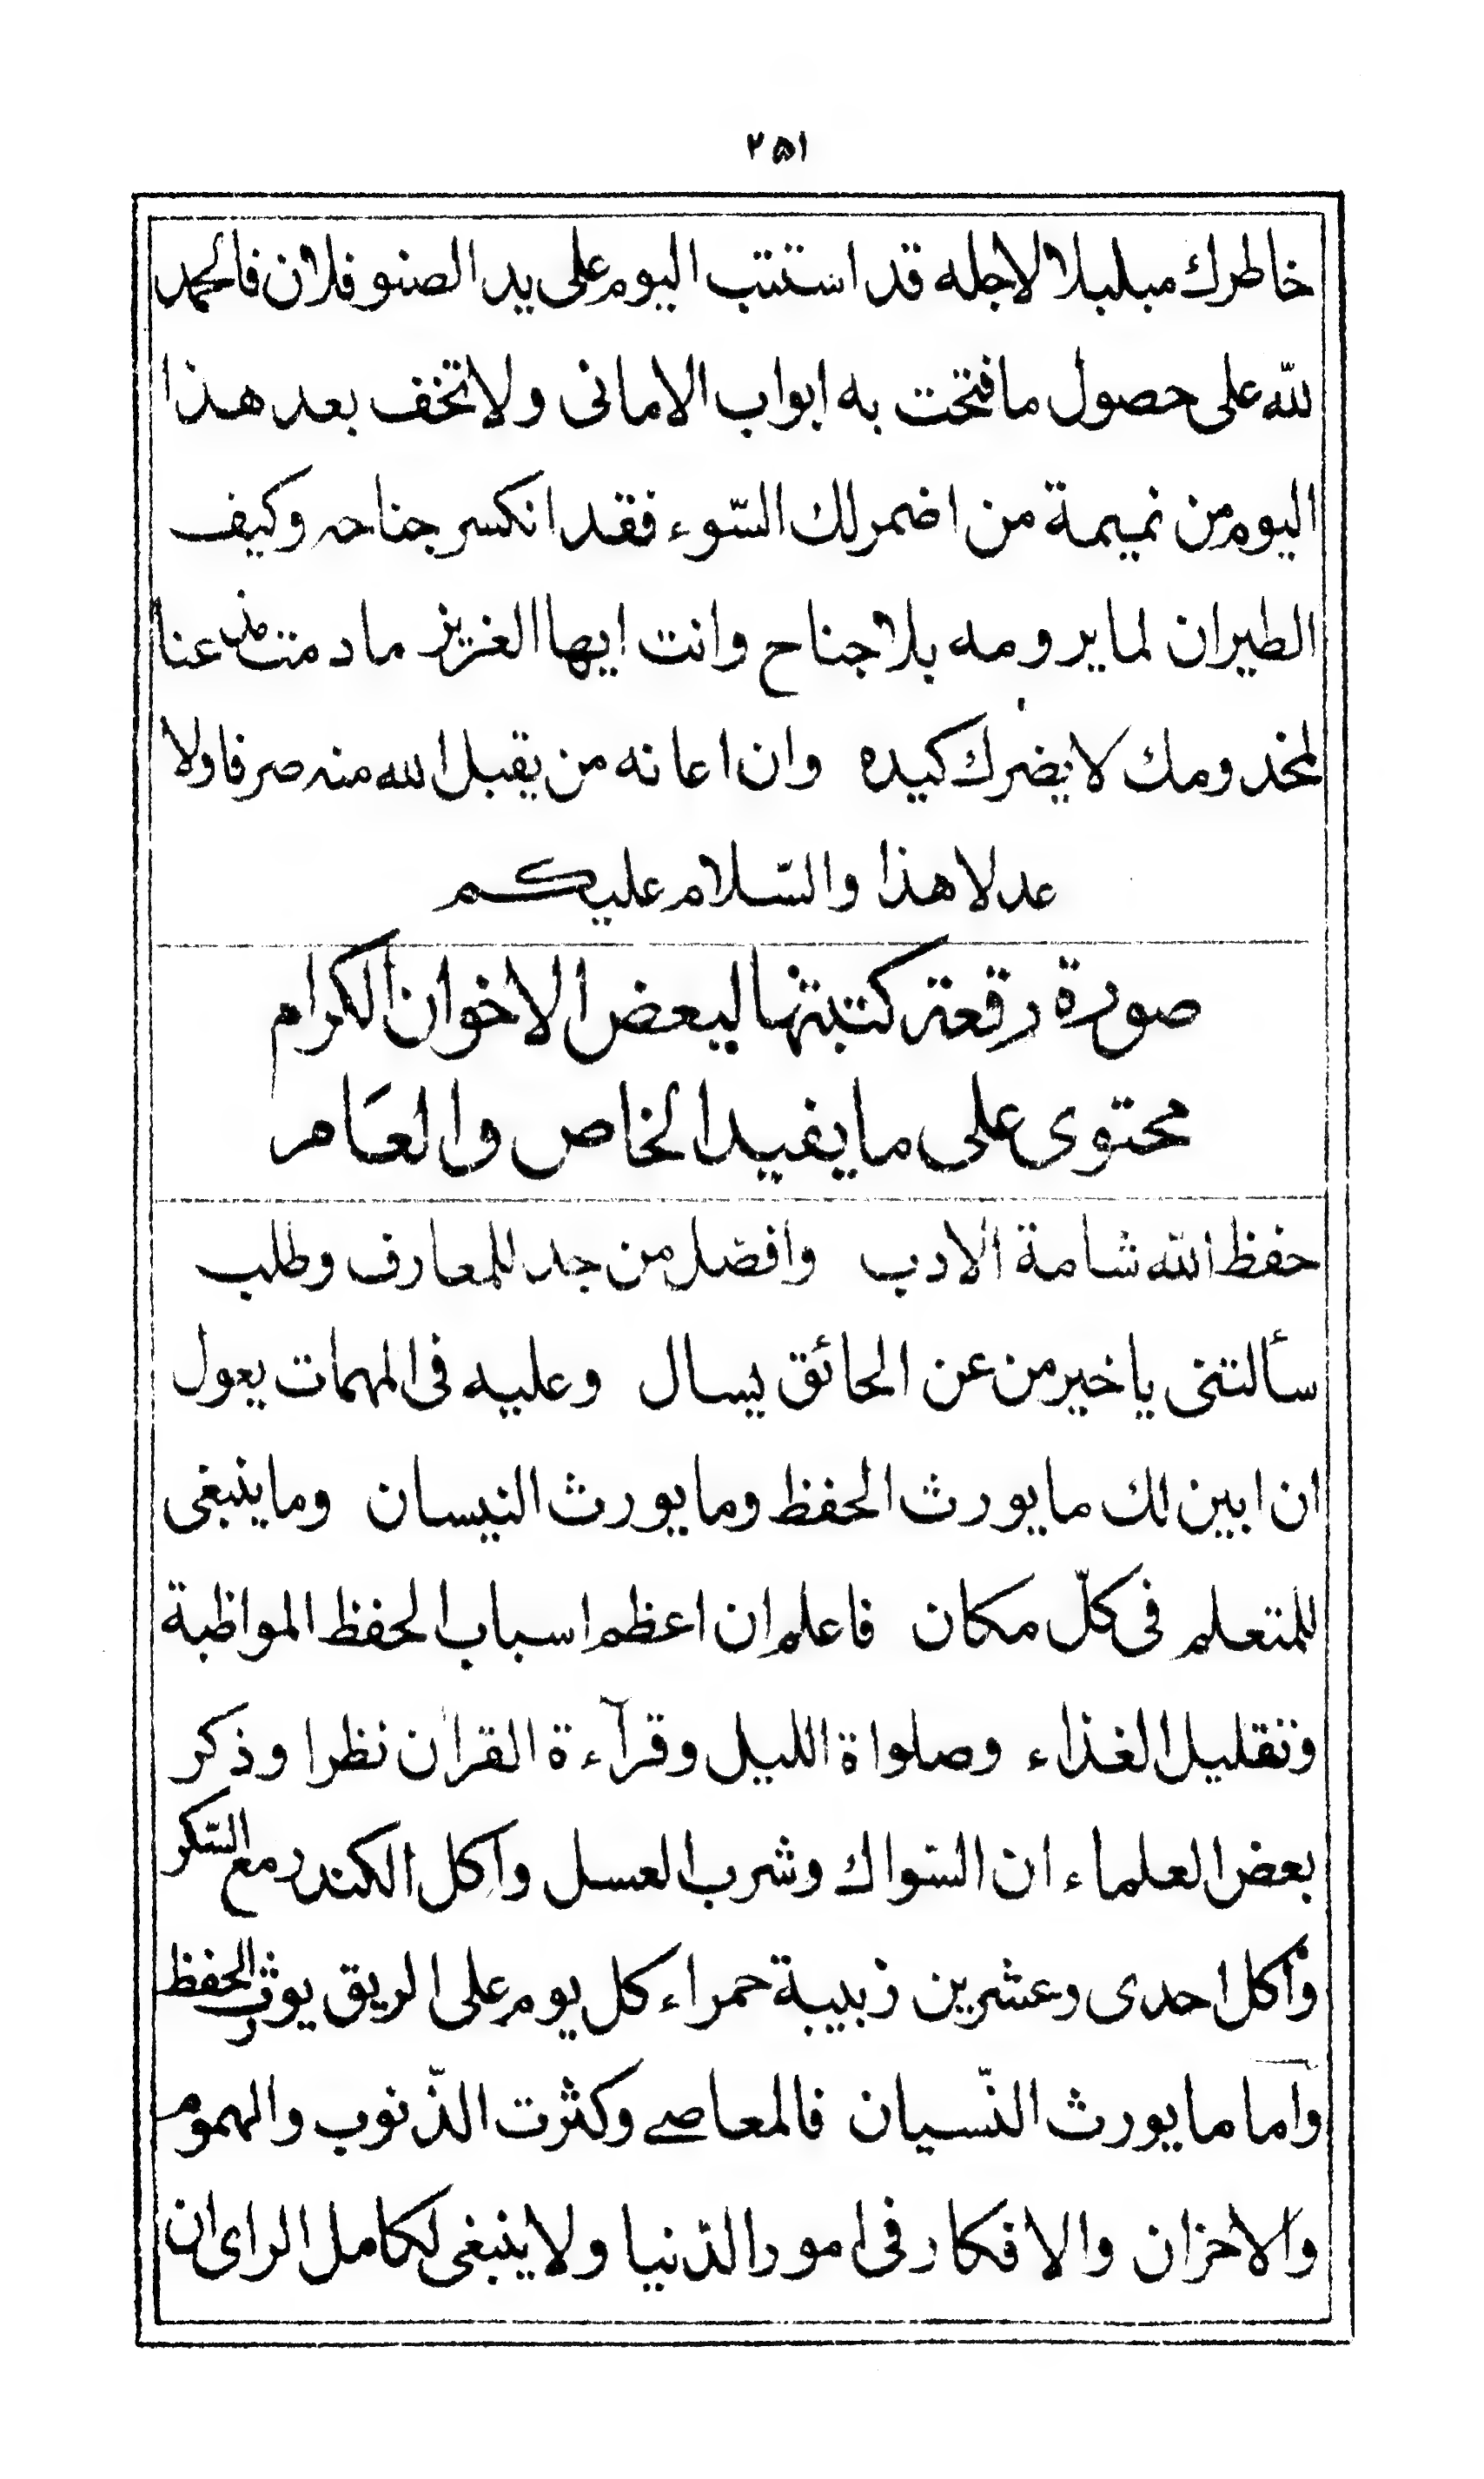 ٢٥١
خاطرك مبلبلا لاجله قد استتب اليوم على يد الصنو فلان فالحمد
لله على حصول ما فتحت به ابواب الامانى ولا تخف بعد هذا
اليوم من نميمة من اضمر لك السّوء فقد انكسر جناحه وكيف
الطيران لما يرومه بلا جناح وانت ايها العزيز ما دمت مذعنا
لمخدومك لا يضرك كيده وان اعانه من يقبل الله منه صرفا ولا
عدلا هذا والسّلام عليكم
صورة رقعة كتبتها لبعض الاخوان الكرام
محتوى على ما يفيد الخاص والعَام
حفظ الله شامة الادب وافضل من جد للمعارف وطلب
سألتنى يا خير من عن الحائق يسال وعليه فى المهمات يعول
ان ابين لك ما يورث الحفظ وما يورث النيسان وما ينبغى
للمتعلم فى كلّ مكان فاعلم ان اعظم اسباب الحفظ المواظبة
وتقليل الغذاء وصلواة الليل وقرآءة القران نظرا وذكر
بعض العلماء ان السّواك وشرب العسل واكل الكندر مع السّكر
واكل احدى وعشرين زبيبة حمراء كل يوم على الريق يورث الحفظ
واما ما يورث النّسيان فالمعاصے وكثرت الذّنوب والهموم
والاخزان والافكار فى امور الدّنيا ولا ينبغى لكامل الراى ان